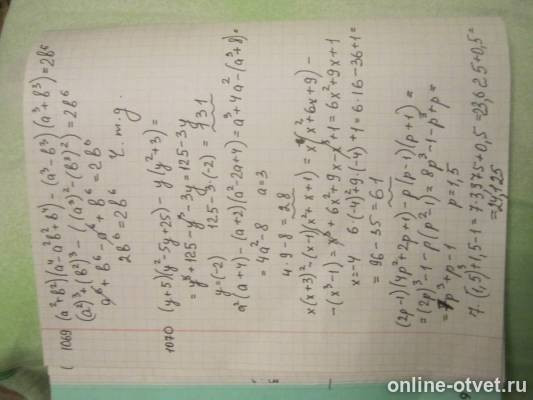 1069 (a²+b²)(a⁴-a²b²+b⁴) - (a³-b³)(a³+b³) = 2b⁶
(a²)³+(b²)³ - ((a³)²-(b³)²) = 2b⁶
a⁶+b⁶-a⁶+b⁶ = 2b⁶
2b⁶ = 2b⁶ ч.т.д.
1070 (y+5)(y²-5y+25) - y(y²+3) =
= y³+125-y³-3y = 125-3y
y=(-2) 125-3·(-2) = 131
a²(a+4) - (a+2)(a²-2a+4) = a³+4a²-(a³+8) =
= 4a²-8 a=3
4·9-8 = 28
x(x+3)² - (x-1)(x²+x+1) = x(x²+6x+9) -
-(x³-1) = x³+6x²+9x-x³+1 = 6x²+9x+1
x=-4 6·(-4)²+9·(-4)+1 = 6·16-36+1 =
= 96-35 = 61
(2p-1)(4p²+2p+1) - p(p-1)(p+1) =
= (2p)³-1-p(p²-1) = 8p³-1-p³+p =
= 7p³+p-1 p=1,5
7·(1,5)³+1,5-1 = 7·3,375+0,5 = 23,625+0,5 =
= 24,125
online-otvet.ru